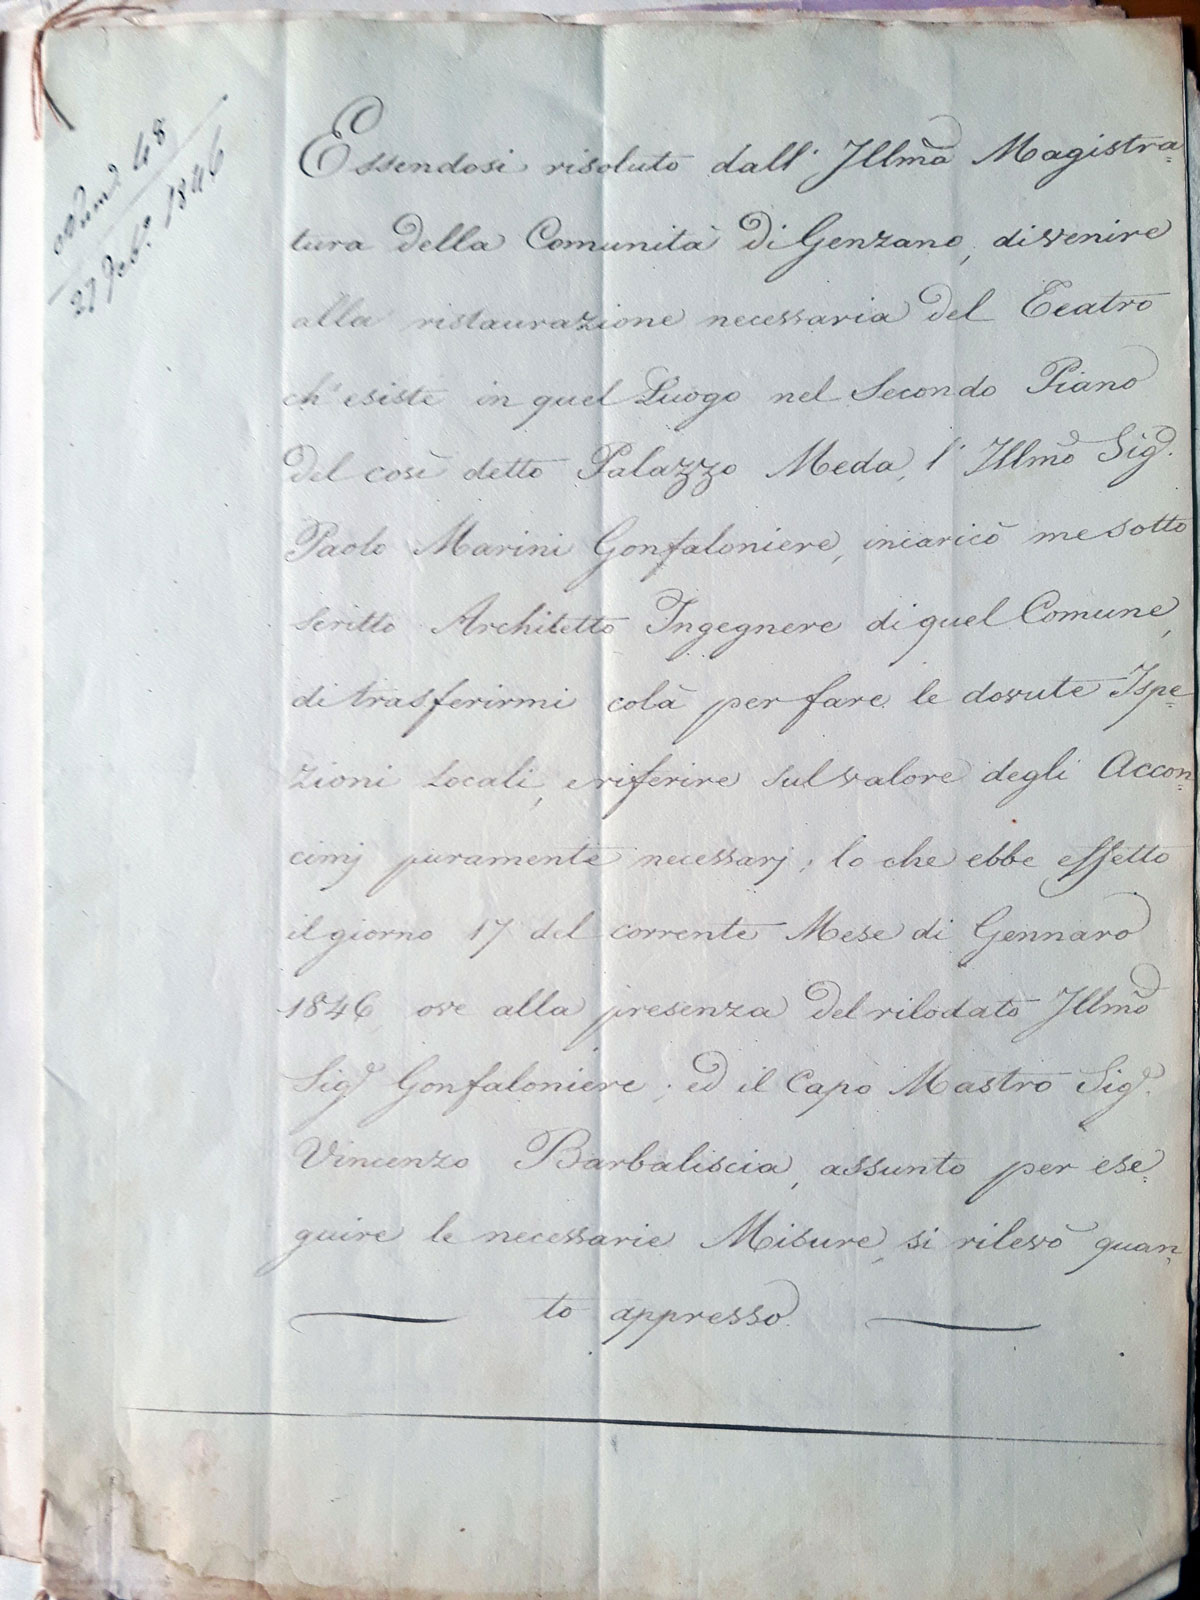 Num.º 48
27 Feb.º 1846
Essendosi risoluto dall' Illma Magistra=
tura della Comunità di Genzano, divenire
alla ristaurazione necessaria del Teatro
ch' esiste in quel Luogo nel Secondo Piano
del così detto Palazzo Meda, l' Illmo Sig.r
Paolo Marini Gonfaloniere, incaricò me sotto
scritto Architetto Ingegnere di quel Comune,
di trasferirmi colà per fare le dovute Ispe=
zioni Locali, e riferire sul valore degli Accon=
cimj puramente necessarj; lo che ebbe effetto
il giorno 17 del corrente Mese di Gennaro
1846, ove alla presenza del rilodato Illmo
Sig.r Gonfaloniere; ed il Capo Mastro Sig.r
Vincenzo Barbaliscia, assunto per ese=
guire le necessarie Misure, si rilevò quan=
to appresso.